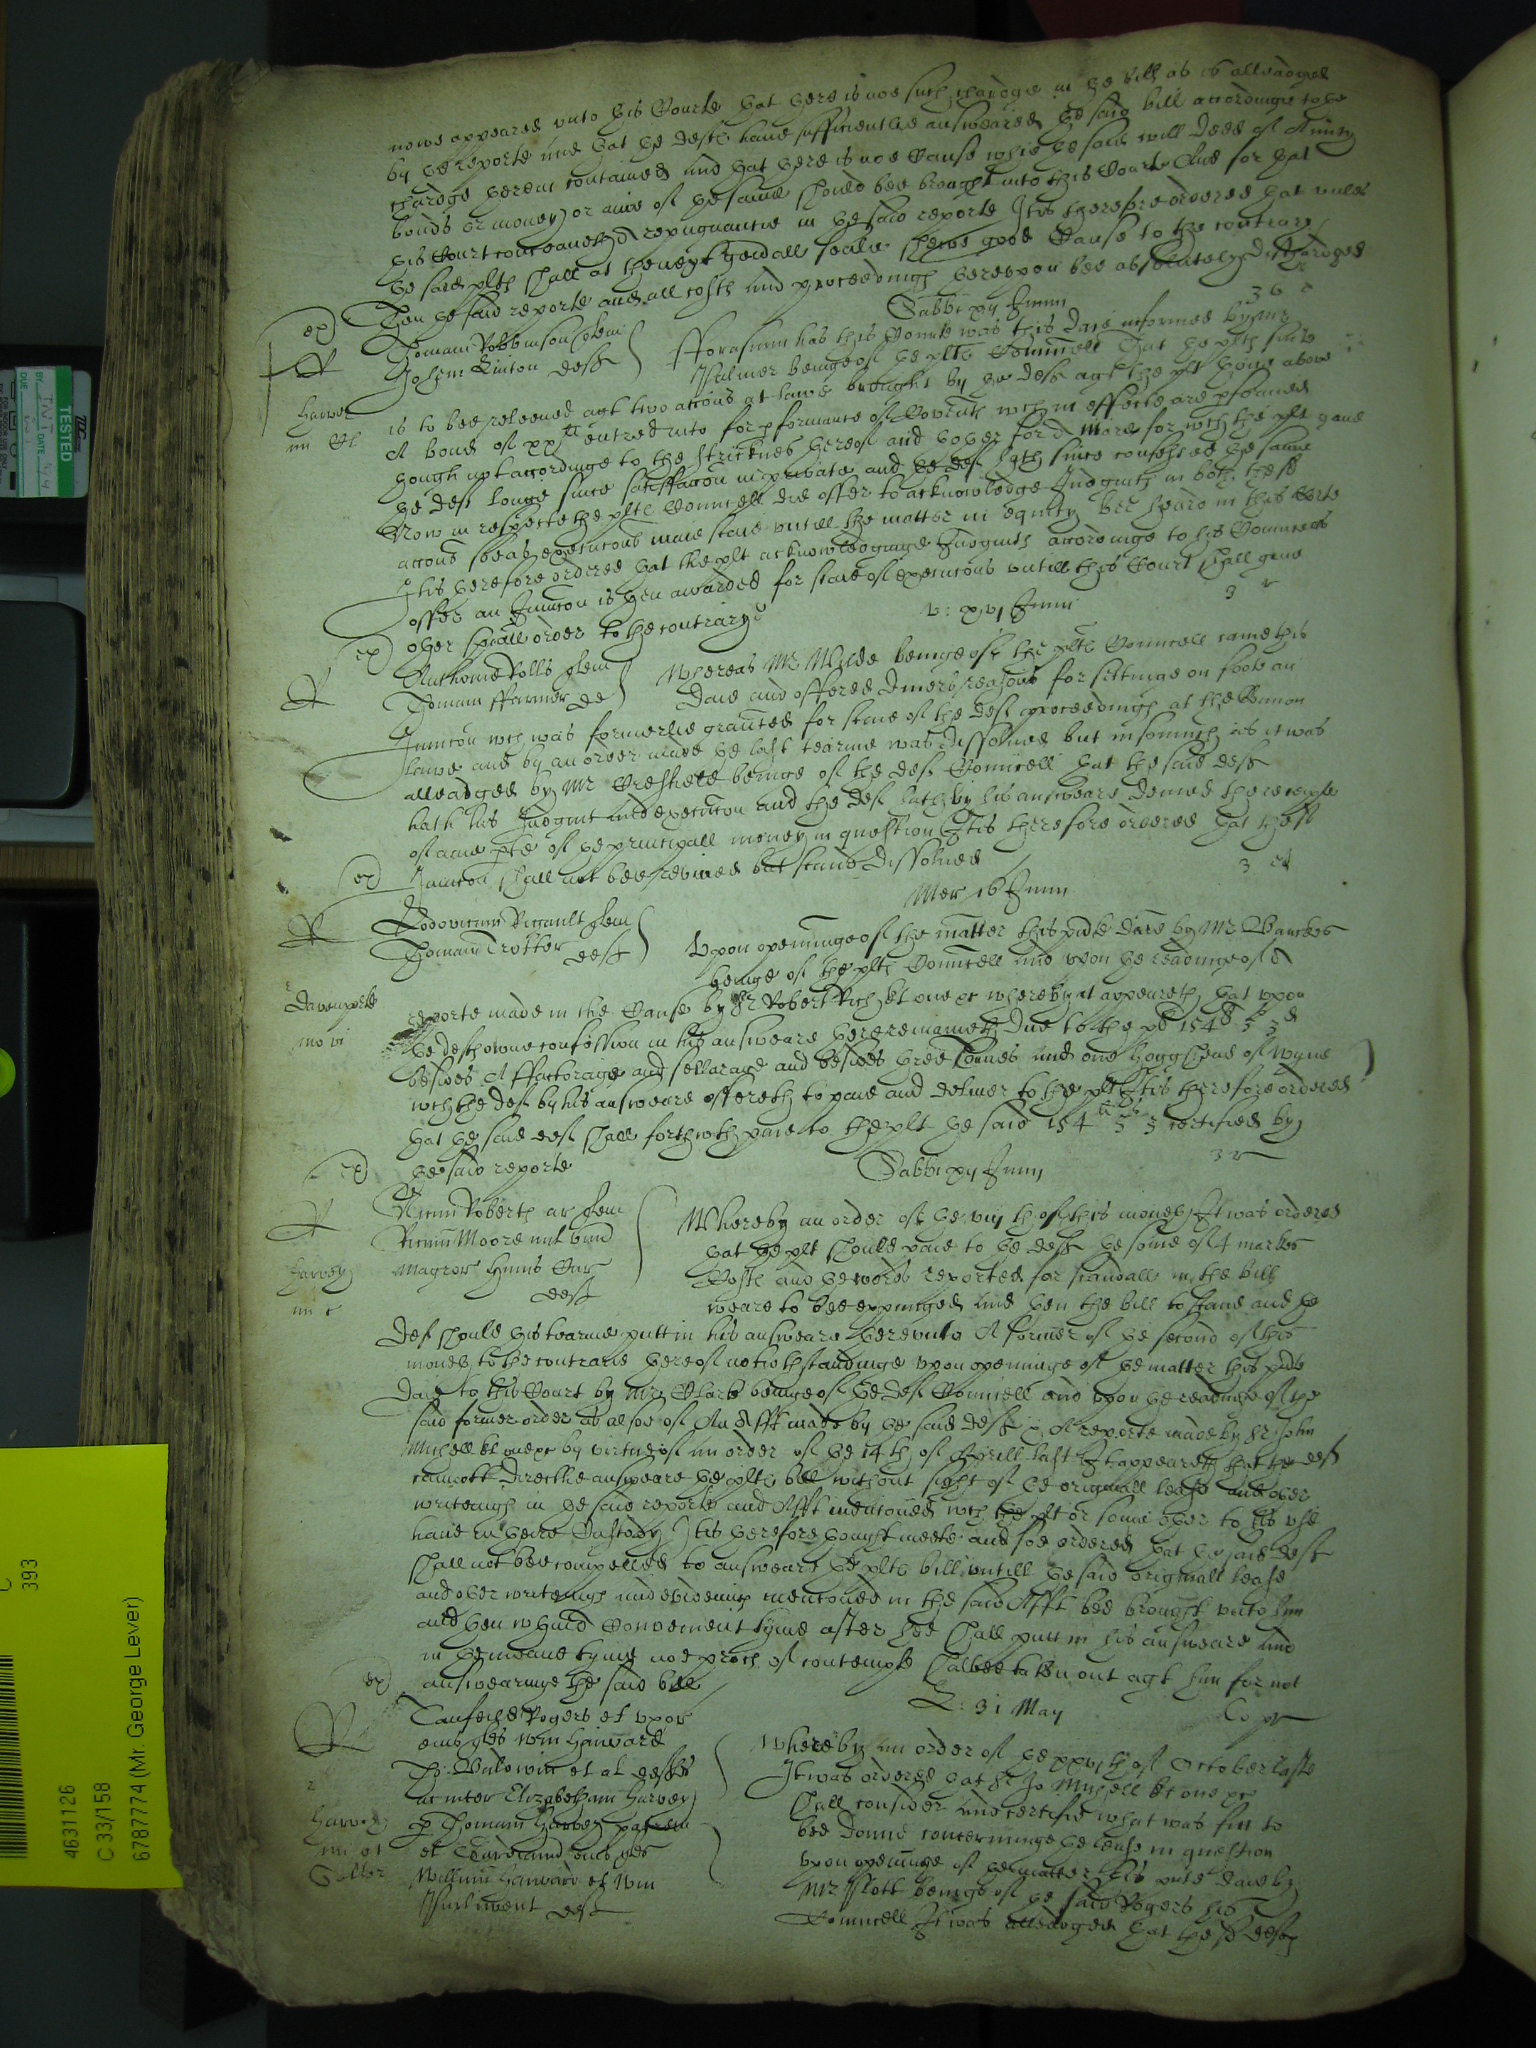 nowe appeared unto this Courte that there is noe such chardge in the bill as is alleadged
by the reporte and that the defts have sufficientlie answeared the said bill accordinge to the
chardge therein contained and that there is noe Cause whie the said will deed of Annuity
bonds or money or anie of the same should bee brought into this Court And for that
this Court conceaveth repugnancie in the said reporte It is therefore ordered that unles
the said plts shall at the next generall seale shewe good Cause to the contrary
Then the said reporte and all costs and proceedings thereupon bee absolutely dischardged
ex
Sabbti xij Junii
Thomam Robbinson quem
Johem Linton deft
R
Forasmuch as this Courte was this daie informed by Mr
Palmer beinge of the plts Councell That the plts suite
Harvey
is to bee releeved agt two accons at lawe brought by the deft agt the plt uppon above
A bond of xxli entred into for pformance of Covents wch in effecte are pformed
though not accordinge to the stricknes thereof and the def hath since confessed the same
the deft longe since satisfaccon in private and
Now in respecte the plts Councell did offer to acknowledge Judgmts in both these
accons soe as execucons maie staie untill the matter in equity bee heard in this Courte
It is therefore ordered that the plt acknowledginge Judgmts accordinge to his Councells
offer an Iniuncon is then awarded for staie of execucons untill this Court shall give
other spciall order to the contrary
ex
v: xvj Junii
Anthonie Rolls quem
Thomam Farmer de
R
Whereas Mr Wilde beinge of the plts Councell came this
daie and offered divers reasons for settinge on foote an
Iniuncon wch was formerlie graunted for staie of the defts proceedings at the Comon
lawe and by an order made the last tearme was dissolved but insomuch as it was
alleadged by Mr beinge of the defts Councell that the said deft
hath his Judgmt and execucon and the deft hath by his answeare denied the receipte
of anie pte of the principall money in question It is therefore ordered that the sd
Iniuncon shall not bee revived but stand dissolved
ex
Mer 16 Junii
Lodovicum Rigault quem
Thomam Trotter deft
R
Upon openinge of the matter this pnte daie by Mr Banckes
beinge of the plts Councell and upon the readinge of a
Davenporte
reporte made in the Cause by Sr Robert Rich kt one &c whereby it appeareth that upon
the defts owne confession in his answeare there remaineth due to the plt 154li 5s 3d
besides A Factorage and sellarage and besides three Tonnes and one hoggshead of wyne
wch the deft by his answeare offereth to paie and deliver to the plt It is therefore ordered
that the said deft shall forthwth paie to the plt the said 154li 5s 3 certified by
the said reporte
ex
Sabbti xij Junij
Ricum Roberts ar quem
Ricum Moore
deft
R
Harvey
Whereby an order of the viij th of this moneth It was ordered
that the plt should paie to the deft the some of 4 markes
Costs and the words reported for scandall in the bill
weare to bee expunged and then the bill to stand and the
deft should this tearme putt in his answeare thereunto A former of the second of this
moneth to the contrarie thereof notwithstandinge upon openinge of the matter this pnte
daie to this Court by Mr Clark beinge of the defts Councell and upon the readinge of the
said former order as alsoe of An Afft made by the said deft & A reporte made by Sr John
Michell kt one &c by virtue of an order of the 14th of Aprill last It appeareth that the deft
cannott directlie answeare the plts bill without sight of the originall lease and other
writeings in the said reporte and Afft mencioned wch the plt or some other to his use
have in theire Custody It is therefore thought meete and soe ordered that the said deft
shall not bee compelled to answeare the plts bill untill the said originall lease
and other writeings and evidences mencioned in the said Afft bee brought unto him
and then wthin Convenient tyme after hee shall putt in his answeare and
in the meane tyme noe proces of contempte shalbee taken out agt him for not
answearinge the said bill
ex
31 May
Tanfeild Rogers et uxor
eius quer Wm Haiward
Baldwin et al defts
ac inter Elizabetham Harvey
p Thomam Harvey patrem
et Gardianum eius quer
Willmum Haiward et Wm
Purlivent deft
R
Harvey
Whereby an order of the xxvjth of October laste
It was ordered that Sr Jo Michell kt one &c
shall consider and certifie what was fitt to
bee donne concerninge the lease in question
upon openinge of the matter this pnte daie by
Mr Flott beinge of the said Rogers his
Councell It was alleadged that the sd defts
TESTED
DUE
BY
DATE
C
393
4631126
C 33/158
6787774 (Mr. George Lever)